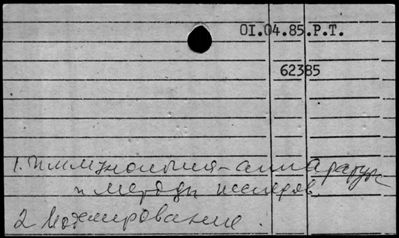 01.04.85.Р.Т.
62385
1. Иммунология - аппаратура
и методы исследов.
2